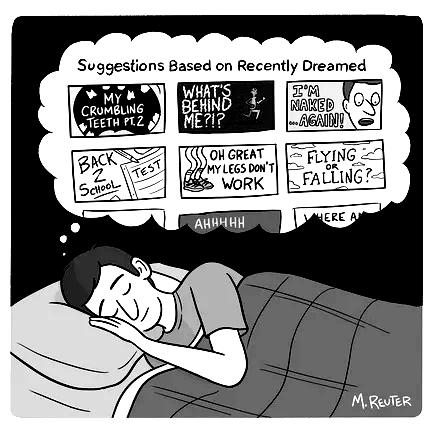 Suggestions Based on Recently Dreamed
MY
CRUMBLING
TEETH PT.2
WHAT'S
BEHIND
ME?!?
I'M
NAKED
...AGAIN!
BACK
2
SCHOOL
TEST
OH GREAT
MY LEGS DON'T
WORK
FLYING
OR
FALLING?
AHHHHH
WHERE AM
M. REUTER